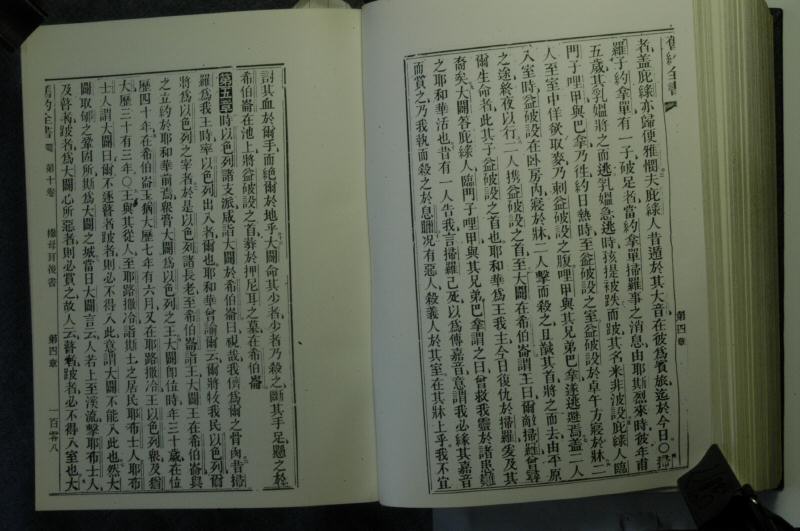 舊約全書
第四章
者蓋庇綠亦歸便雅憫夫庇綠人昔遁於其大音在彼爲賓旅迄於今日○掃
羅子約拿單有一子破足者當約拿單掃羅事之消息由耶斯烈來時彼年甫
五歲其乳媼將之而逃乳媼急逃時孩提被跌而跛其名米非波設庇綠人臨
門子哩甲與巴拿乃徃約日熱時至益破設之室益破設於卓午方寢於牀二
人至室中佯欲取麥乃刺益破設之腹哩甲與其兄弟巴拿遂逃避焉蓋二人
入室時益破設在卧房內寢於牀二人擊而殺之且馘其首將之而去由平原
之途終夜以行二人攜益破設之首至大闢在希伯崙謂王曰爾敵掃羅曾尋
爾生命者此其子益破設之首也耶和華爲王我主今日復仇於掃羅爰及其
裔矣大闢答庇綠人臨門子哩甲與其兄弟巴拿謂之曰曾救我靈於諸患難
之耶和華活也昔有一人告我言掃羅已死以爲傳嘉音意謂我必緣其嘉音
而賞之乃我執而殺之於息臘况有惡人殺義人於其室在其牀上乎我不宜
討其血於爾手而絕爾於地乎大闢命其少者少者乃殺之斷其手足懸之於
希伯崙在池上將益破設之首葬於押尼耳之墓在希伯崙
第五章時以色列諸支派咸詣大闢於希伯崙曰視哉我儕爲爾之骨肉昔掃
羅爲我王時率以色列出入者爾也耶和華曾諭爾云爾將牧我民以色列爾
將爲以色列之宰者於是以色列諸長老至希伯崙詣王大闢王在希伯崙與
之立約於耶和華前焉衆膏大闢爲以色列之王大闢卽位時年三十歲在位
歷四十年在希伯崙王猶大歷七年有六月又在耶路撒冷王以色列衆及猶
大歷三十有三年○王與其從人至耶路撒冷詣斯土之居民耶布士人耶布
士人謂大闢曰爾不逐瞽者跛者則必不得入此意謂大闢不能入此也然大
闢取郇之鞏固所斯爲大闢之城當日大闢言云人若上至溪流擊耶布士人
及瞽者跛者爲大闢心所惡者則必賞之故人云瞽者跛者必不得入室也大
舊約全書 第十卷 撒母耳後書 第四章 一百零八